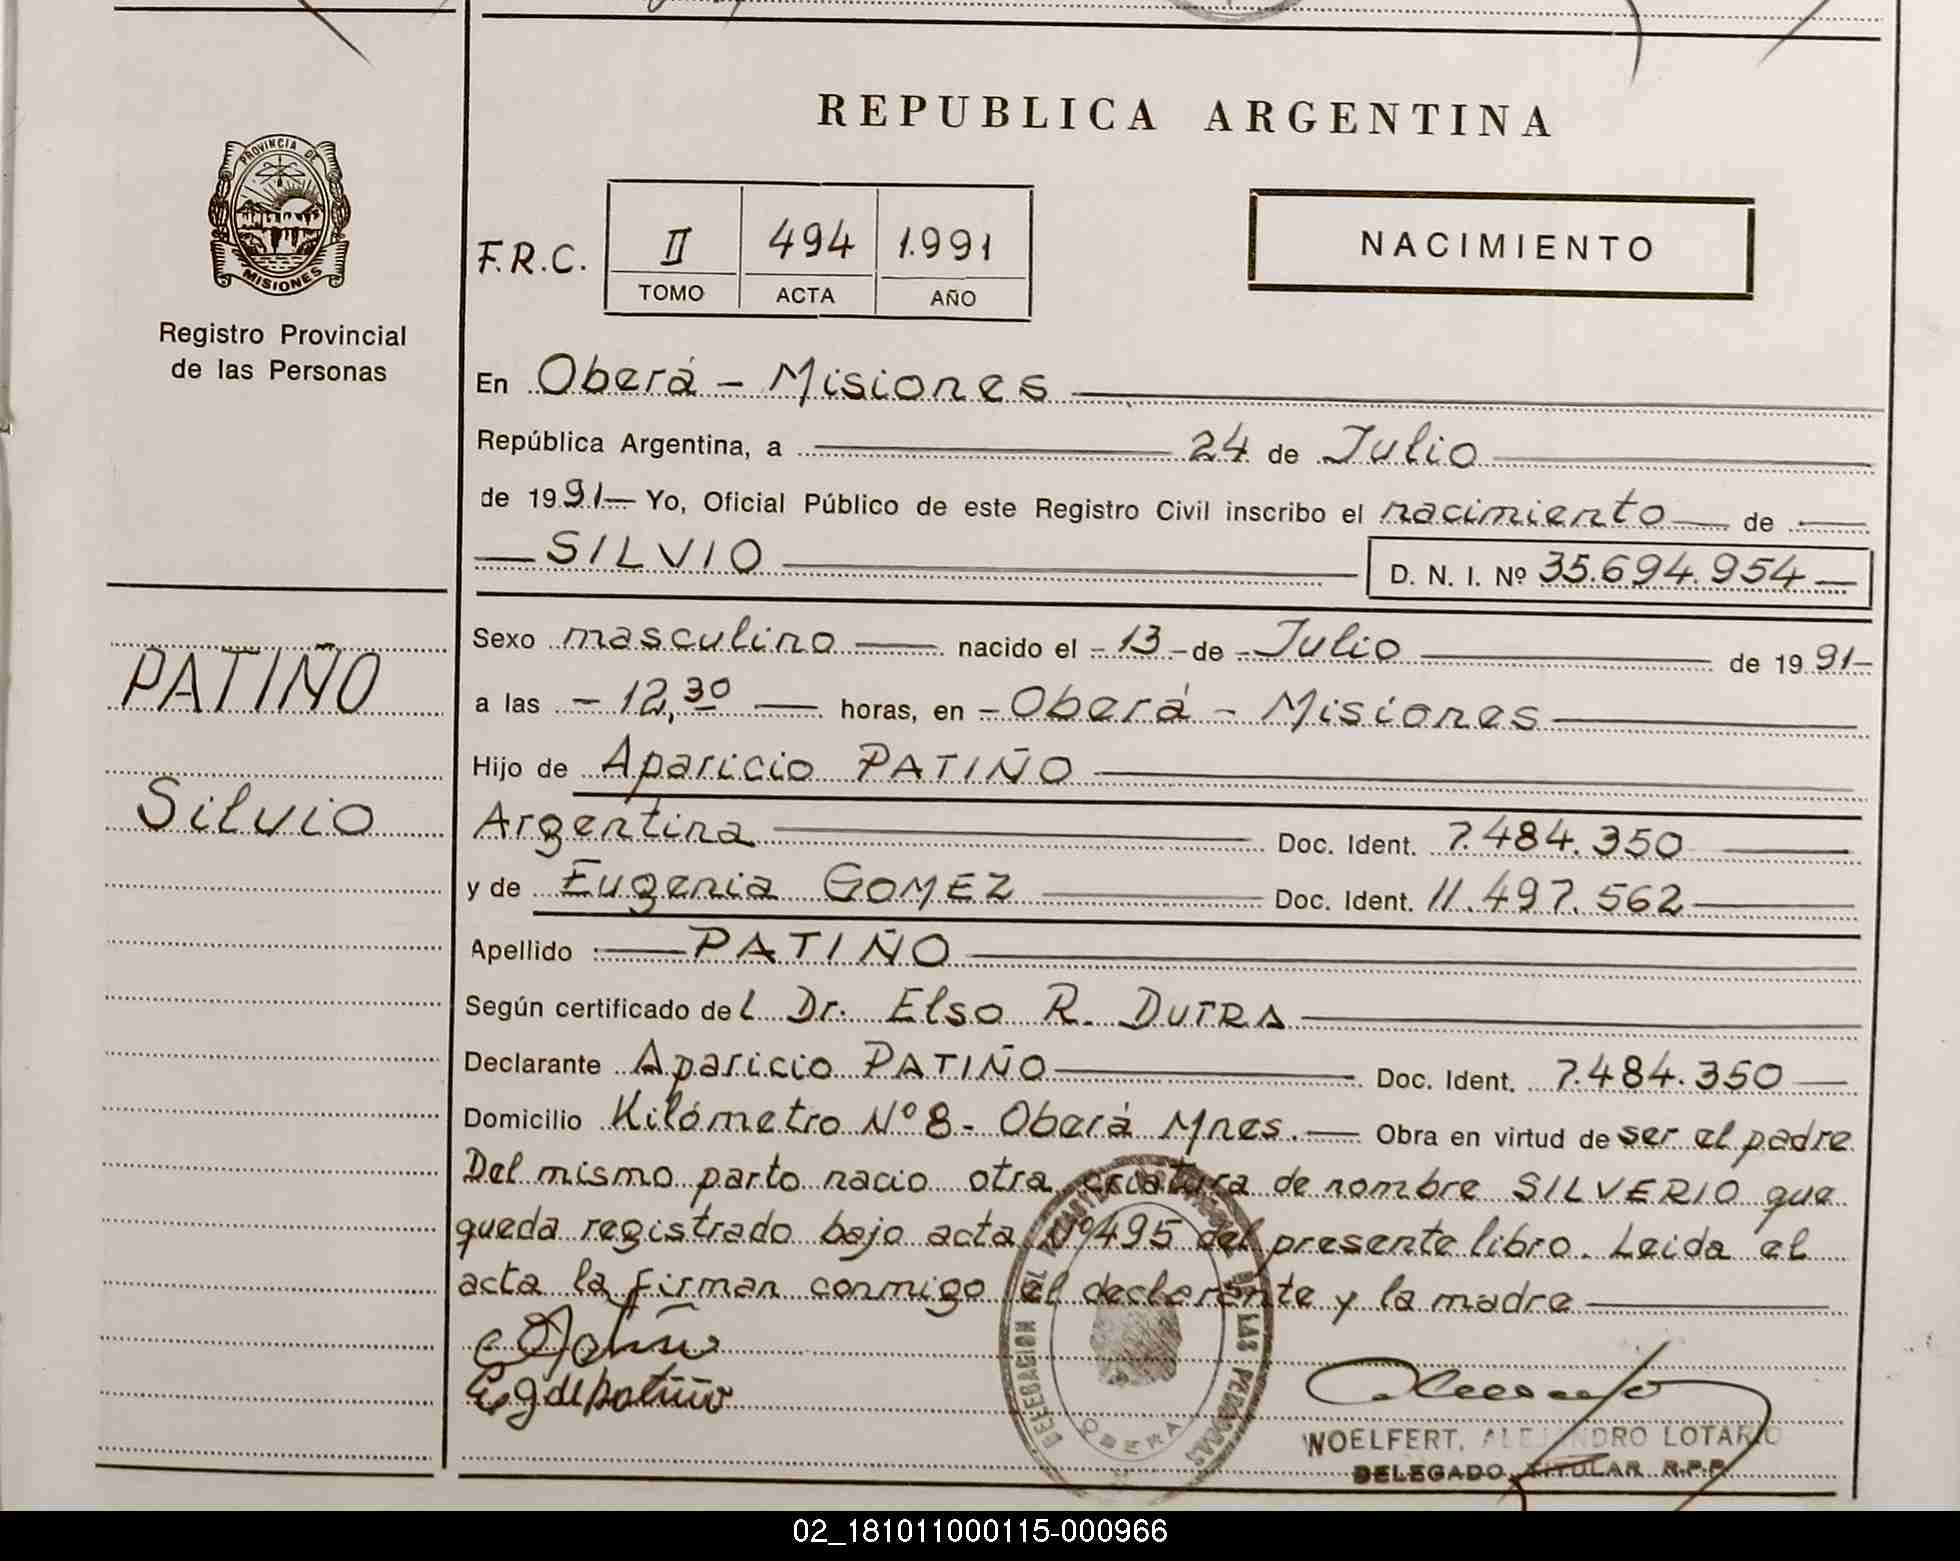 REPUBLICA ARGENTINA
PROVINCIA DE
MISIONES
Registro Provincial
de las Personas
F.R.C. II 494 1.991
TOMO ACTA AÑO
NACIMIENTO
En Oberá - Misiones
República Argentina, a 24 de Julio
de 1991- Yo, Oficial Público de este Registro Civil inscribo el nacimiento de
SILVIO D. N. I. Nº 35.694.954
PATIÑO
Silvio
Sexo masculino nacido el - 13 - de - Julio de 1991-
a las - 12,30 horas, en - Oberá - Misiones
Hijo de Aparicio PATIÑO
Argentina Doc. Ident. 7.484.350
y de Eugenia GOMEZ Doc. Ident. 11.497.562
Apellido PATIÑO
Según certificado del Dr. Elso R. DUTRA
Declarante Aparicio PATIÑO Doc. Ident. 7.484.350
Domicilio Kilómetro Nº 8 - Oberá Mnes. Obra en virtud de ser el padre
Del mismo parto nacio otra criatura de nombre SILVERIO que
queda registrado bajo acta Nº 495 del presente libro. Leida el
acta la firman conmigo el declarante y la madre
DELEGACION DE LAS PERSONAS
OBERA
WOELFERT, ALEJANDRO LOTARIO
DELEGADO TITULAR R.P.P.
02_181011000115-000966